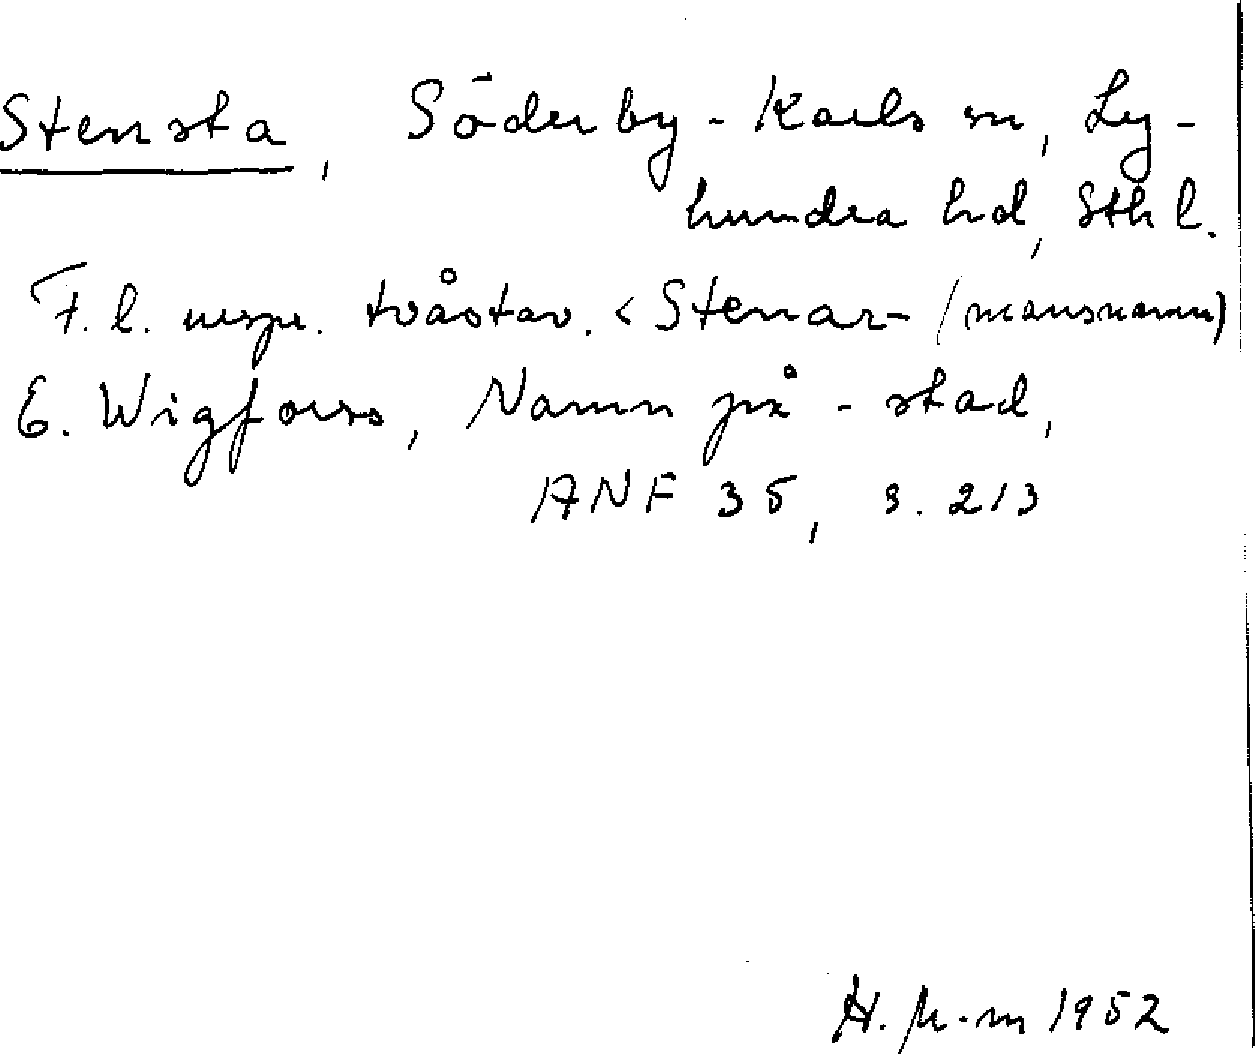 Stensta, Söderby-Karls sn, Ly-
hundra hd, Sthl.
F. l. urspr. tvåstav. < Stenar- (mansnamn)
E. Wigforss, Namn på -stad,
ANF 35, s. 213
H. M-m 1952